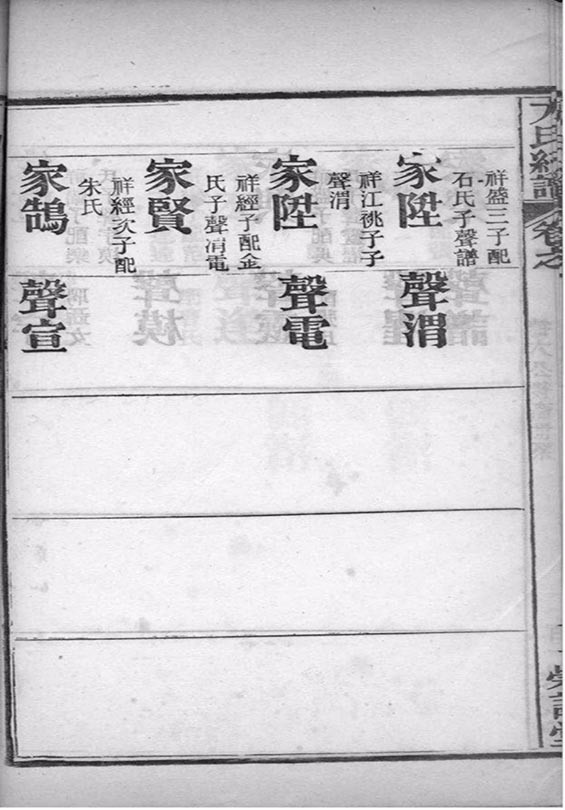 氏
譜
卷之
祥盛三子配
石氏子聲譜
家陞
祥江祧子子
聲渭
家陞
祥經子配金
氏子聲渭電
家賢
祥經次子配
朱氏
家鵠
聲渭
聲電
聲宣